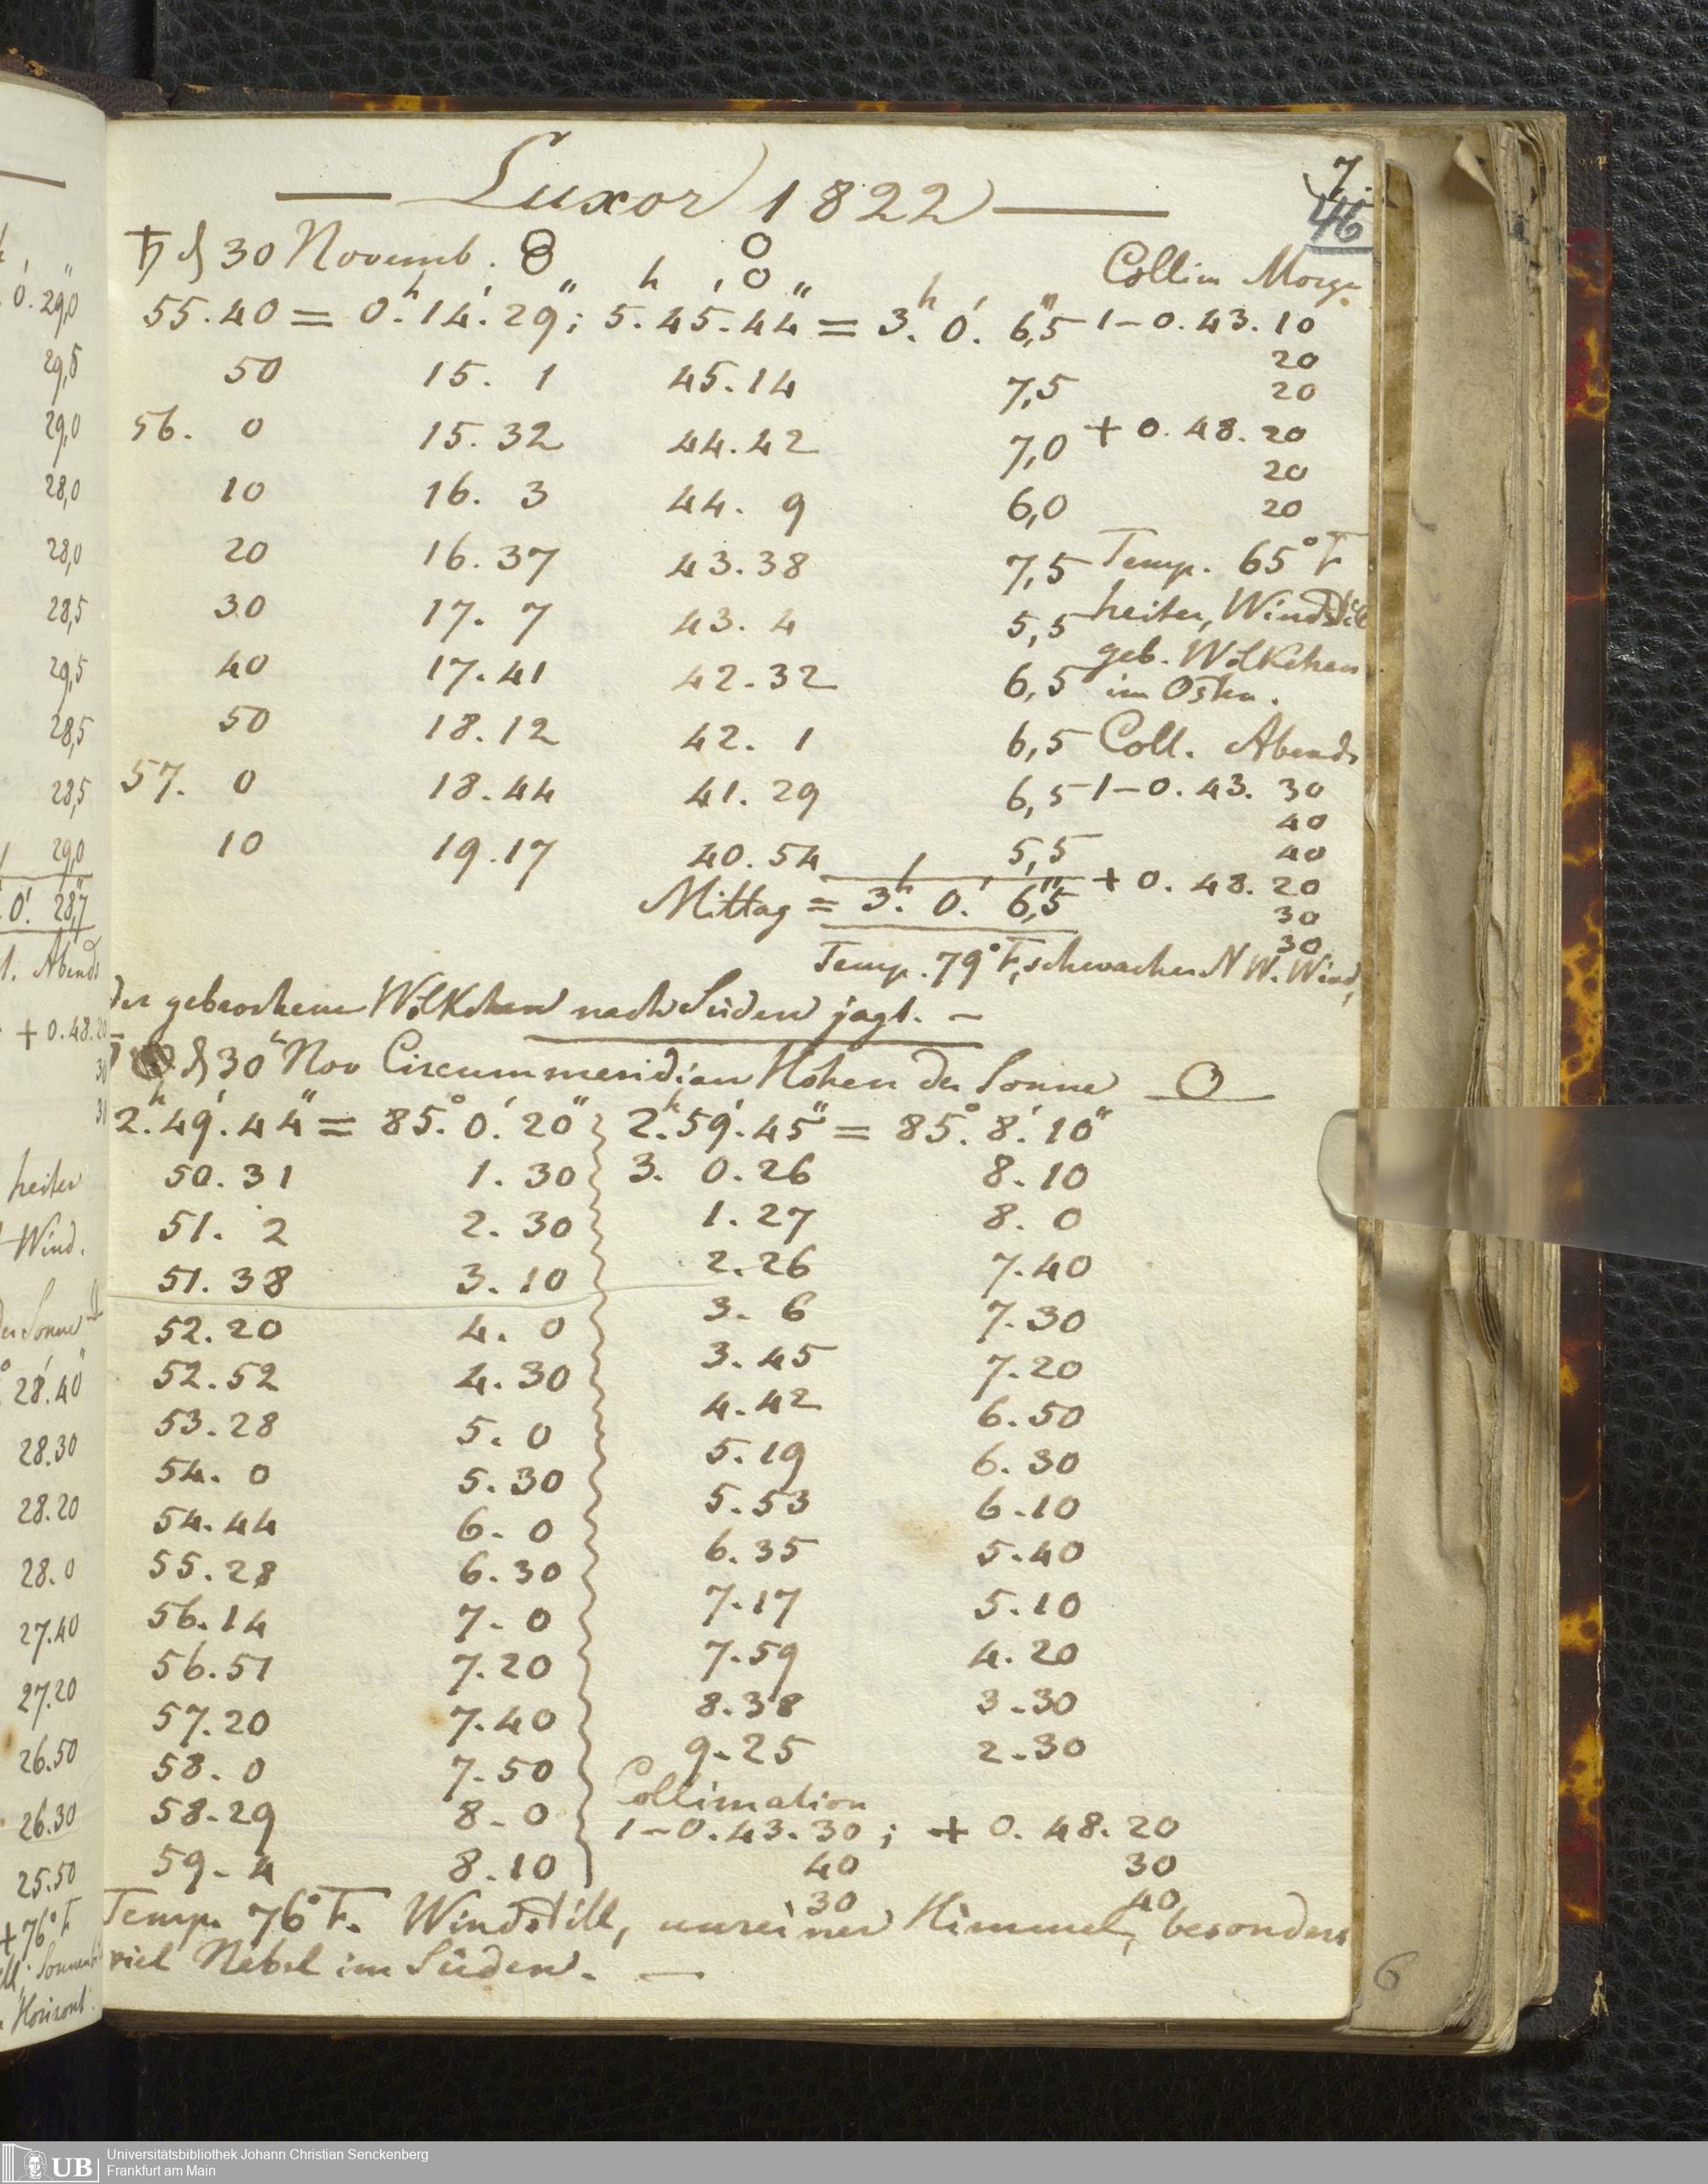 — Luxor 1822 —
7.
46
♄ d 30 Novemb. Collim Morge
55.40 = 0.h 14.' 29;" 5.h 45.' 44" = 3.h 0.' 6,"5 1-0.43.10
20
50 15. 1 45.14 7,5 20
56. 0 15.32 44.42 7,0 + 0.48.20
20
10 16. 3 44. 9 6,0 20
20 16.37 43.38 7,5 Temp. 65° F
30 17. 7 43. 4 5,5 heiter, Windstill
geb. Wölkchen
40 17.41 42.32 6,5 im Osten.
50 18.12 42. 1 6,5 Coll. Abends
57. 0 18.44 41.29 6,5 1-0.43.30
40
10 19.17 40.54 5,5 40
Mittag = 3.h 0.' 6,"5 + 0.48.20
30
30
Temp. 79° F, schwacher N W. Wind,
der gebrochene Wölkchen nach Süden jagt. —
d 30t Nov Circummeridian Höhen der Sonne
2.h 49.' 44" = 85.° 0.' 20" 2.h 59.' 45" = 85.° 8.' 10"
50.31 1.30 3. 0.26 8.10
51. 2 2.30 1.27 8. 0
51.38 3.10 2.26 7.40
52.20 4. 0 3. 6 7.30
52.52 4.30 3.45 7.20
53.28 5. 0 4.42 6.50
54. 0 5.30 5.19 6.30
54.44 6. 0 5.53 6.10
55.28 6.30 6.35 5.40
56.14 7. 0 7.17 5.10
56.51 7.20 7.59 4.20
57.20 7.40 8.38 3.30
58. 0 7.50 9.25 2.30
58.29 8. 0 Collimation
1-0.43.30 ; + 0.48.20
59. 4 8.10 40 30
30 40
Temp. 76° F. Windstill, unreiner Himmel, besonders
viel Nebel im Süden. —
6
0.' 29,"0
29,5
29,0
28,0
28,0
28,5
29,5
28,5
28,5
29,0
0.' 28,"7
Abends
+ 0.48.20
30
30
heiter
Wind.
der Sonne
28.'40"
28.30
28.20
28.0
27.40
27.20
26.50
26.30
25.50
+76° F
Horizont.
UB
Universitätsbibliothek Johann Christian Senckenberg
Frankfurt am Main